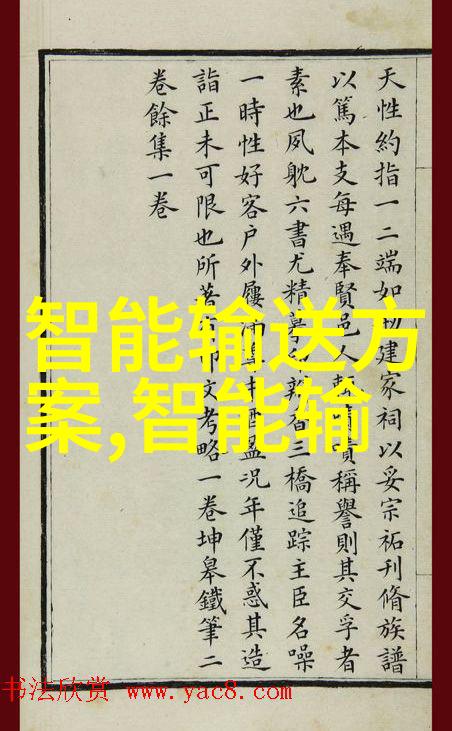 天性約指一二端如建家祠以妥宗祏刊脩族譜
以篤本支每遇奉賢邑人嘖稱譽則其交孚者
素也夙躭六書尤精三橋追踪主臣名噪
一時性好客户外屨況年僅不惑其造
詣正未可限也所著文考略一卷坤皋鐵筆二
卷餘集一卷
智能输送方
案,智能输
书法欣赏 www.yac8.com